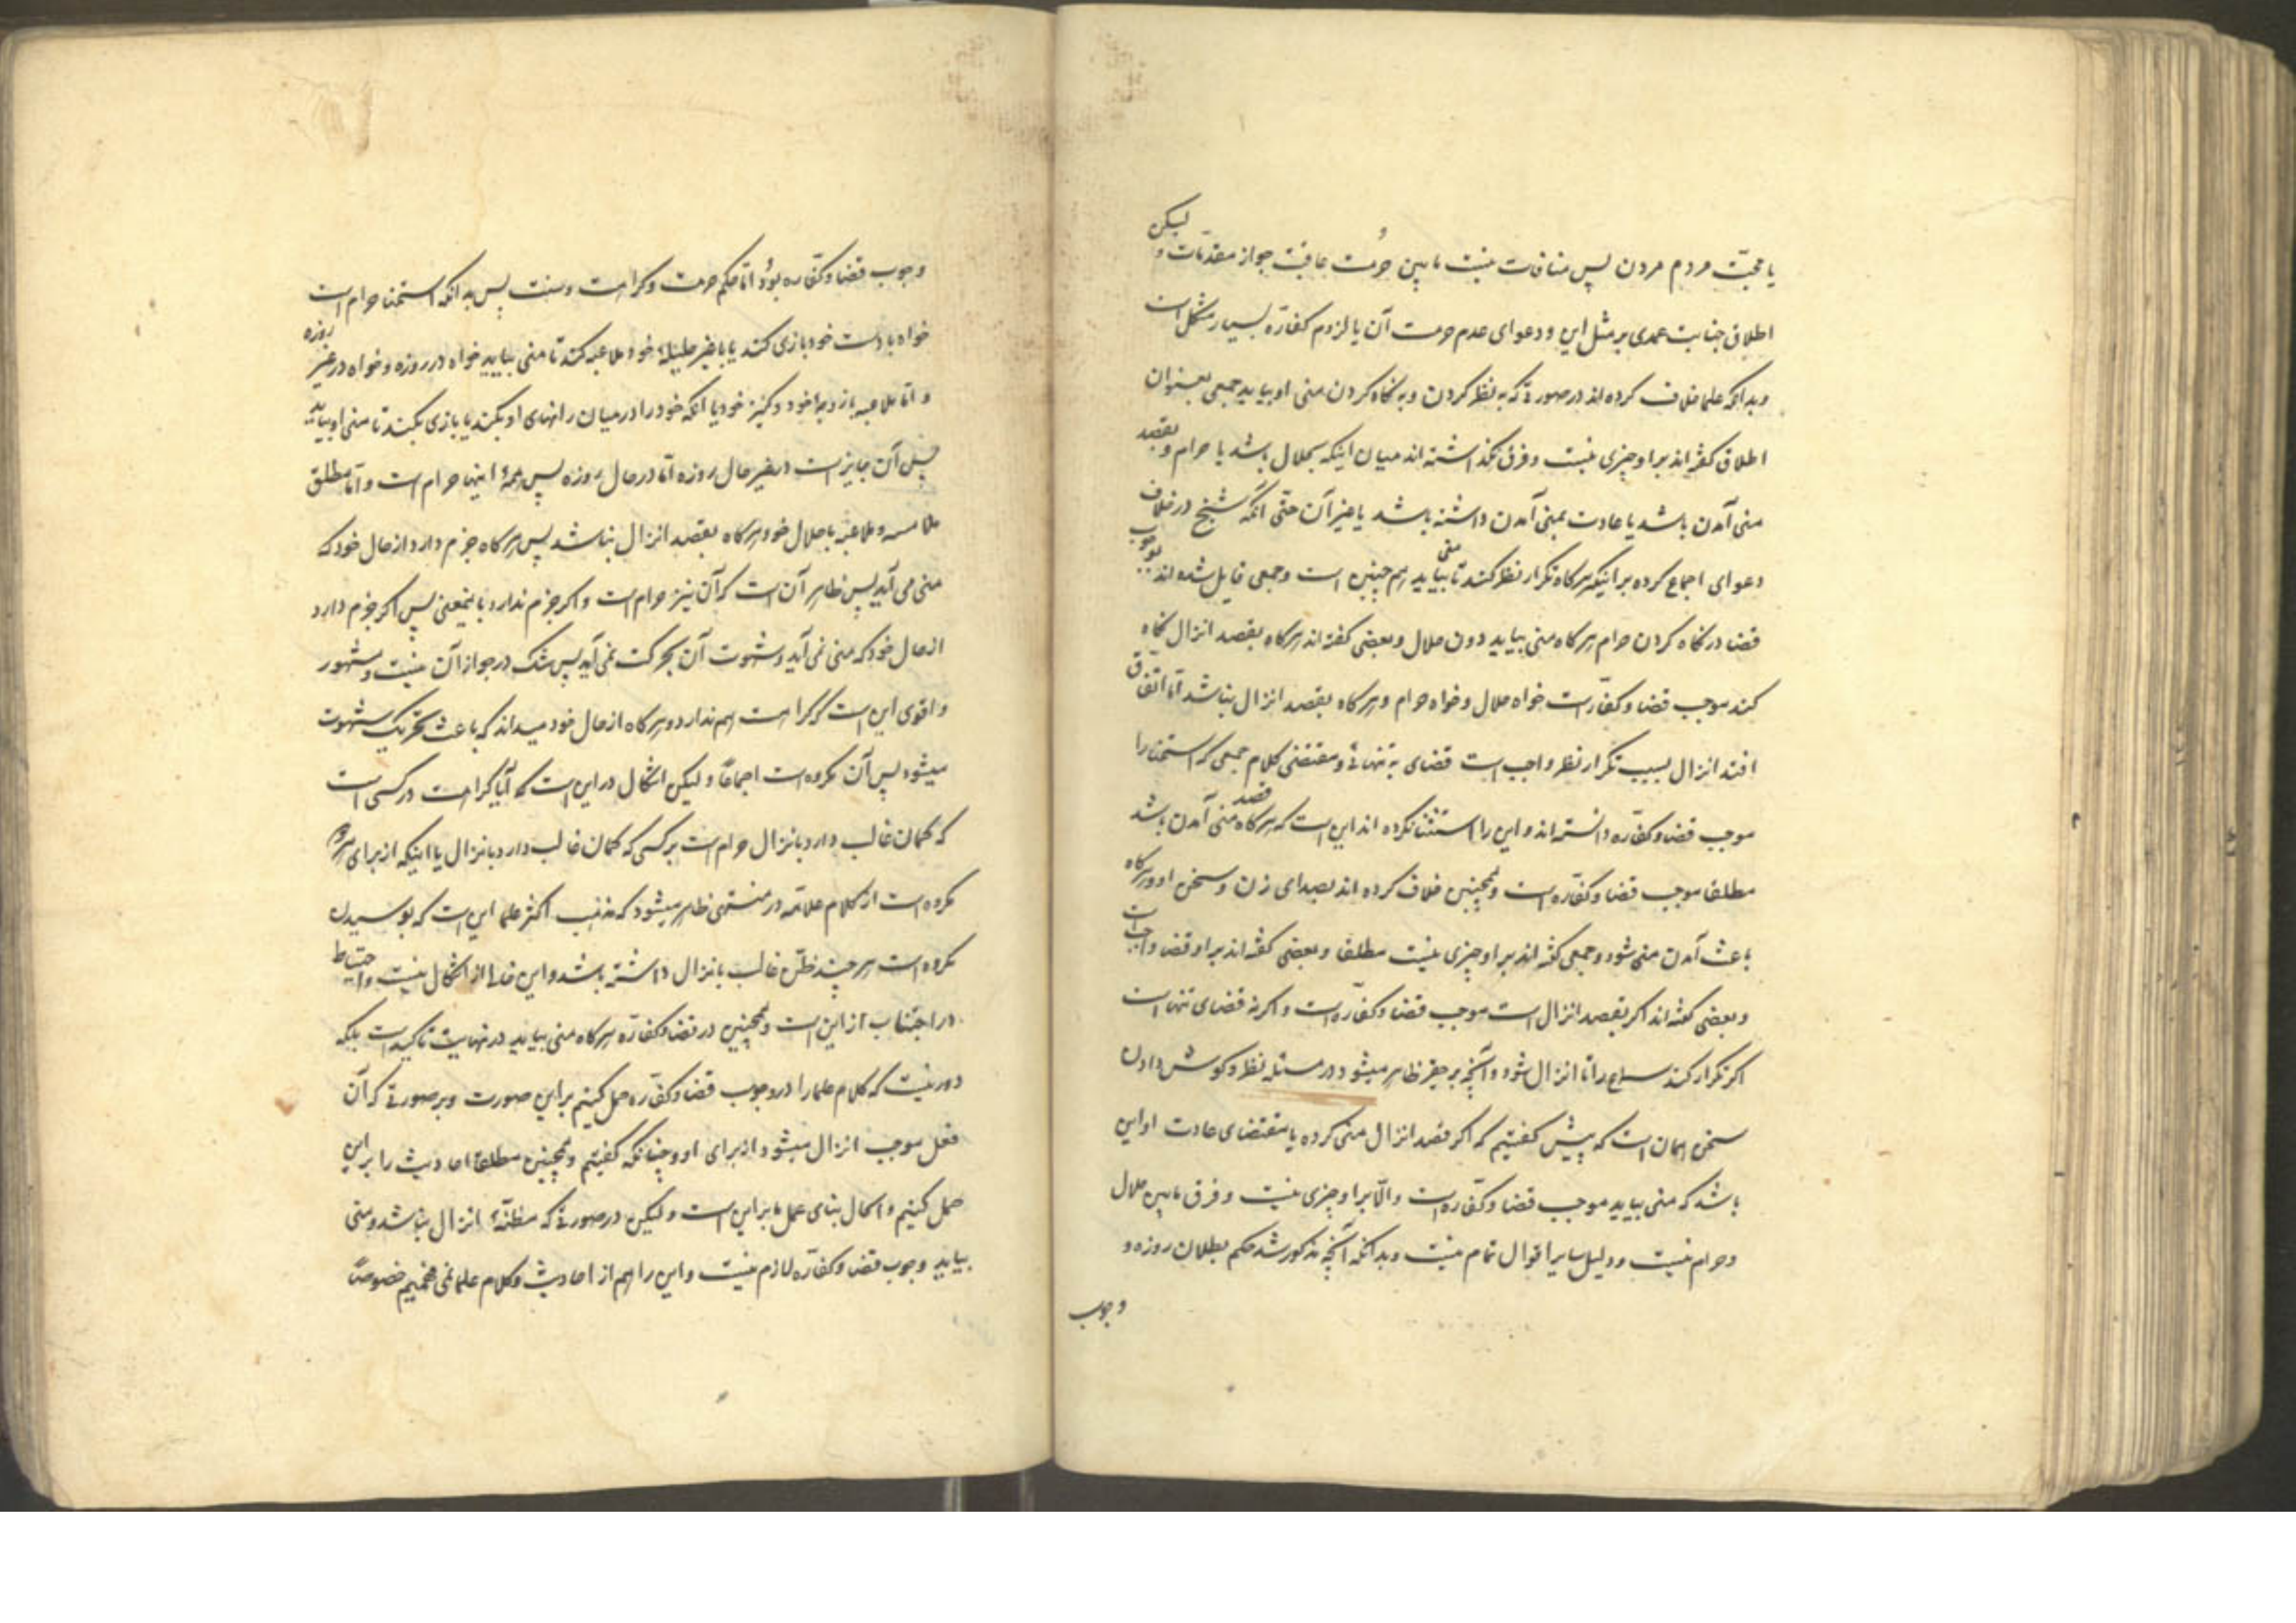 یا محبّت مردم مردن پس منافات نیست مابین حرمت عاقبت جواز مقدّمات و لیکن
اطلاق جنابت عمدی بر مثل این و دعوای عدم حرمت آن یا لزوم کفّاره بسیار مشکل است
و بدانکه علما خلاف کرده اند در صورتی که به نظر کردن و به نگاه کردن منی او بیاید جمعی بعنوان
اطلاق گفته اند بر او چیزی نیست و فرق نگذاشته اند میان اینکه بحلال باشد یا حرام و بقصد
منی آمدن باشد یا عادت بمنی آمدن داشته باشد یا غیر آن حتّی آنکه شیخ در خلاف
دعوای اجماع کرده بر اینکه هرگاه تکرار نظر کند تا منی بیاید هم چنین است و جمعی قایل شده اند بوجوب
قضا در نگاه کردن حرام هرگاه منی بیاید دون حلال و بعضی گفته اند هرگاه بقصد انزال نگاه
کند موجب قضا و کفّاره است خواه حلال و خواه حرام و هرگاه بقصد انزال نباشد امّا اتفاق
افتد انزال بسبب تکرار نظر واجب است قضای به تنهائی و مقتضی کلام جمعی که استمنا را
موجب قضا و کفّاره دانسته اند و این را استثنا نکرده اند این است که هرگاه قصد منی آمدن باشد
مطلقا موجب قضا و کفّاره است و همچنین خلاف کرده اند بصدای زن و سخن او و هرگاه
باعث آمدن منی شود و جمعی گفته اند بر او چیزی نیست مطلقا و بعضی گفته اند بر او قضا واجب است
و بعضی گفته اند اگر بقصد انزال است موجب قضا و کفّاره است و اگر نه قضای تنها است
اگر تکرار کند سماع را تا انزال شود و آنچه بر حقیر ظاهر میشود در مسئله نظر و گوش دادن
سخن همان است که پیش گفتیم که اگر قصد انزال منی کرده یا مقتضای عادت او این
باشد که منی بیاید موجب قضا و کفّاره است و الّا بر او چیزی نیست و فرق مابین حلال
و حرام نیست و دلیل سایر اقوال تمام نیست و بدانکه آنچه مذکور شد حکم بطلان روزه و
وجوب
وجوب قضا و کفّاره بود امّا حکم حرمت و کراهت و سنت پس بدانکه استمنا حرام است
خواه با دست خود بازی کند یا با غیر حلیلهٔ خود ملاعبه کند تا منی بیاید خواه در روزه و خواه در غیر روزه
و امّا ملاعبه با زوجهٔ خود و کنیز خود یا آنکه خود را در میان رانهای او بکند یا بازی بکند تا منی او بیاید
پس آن جایز است در غیر حال روزه امّا در حال روزه پس همهٔ اینها حرام است و امّا مطلق
ملامسه و ملاعبه با حلال خود هرگاه بقصد انزال نباشد پس هرگاه جزم دارد از حال خود که
منی می آید پس ظاهر آن است که آن نیز حرام است و اگر جزم ندارد باینمعنی پس اگر جزم دارد
از حال خود که منی نمی آید و شهوت آن بحرکت نمی آید پس شک در جواز آن نیست و مشهور
و اقوی این است که کراهت هم ندارد و هرگاه از حال خود میداند که باعث تحریک شهوت
میشود پس آن مکروه است اجماعًا و لیکن اشکال در این است که آیا کراهت در کسی است
که گمان غالب دارد بانزال حرام است بر کسی که گمان غالب دارد بانزال یا اینکه از برای هر دو
مکروه است از کلام علامّه در منتهی ظاهر میشود که مذهب اکثر علما این است که بوسیدن
مکروه است هر چند ظنّ غالب بانزال داشته باشد و این خالی از اشکال نیست و احتیاط
در اجتناب از این است و همچنین در قضا و کفّاره هرگاه منی بیاید در نهایت تاکید است بلکه
دور نیست که کلام علما را در وجوب قضا و کفّاره حمل کنیم بر این صورت و بر صورتی که آن
فعل موجب انزال میشود از برای او چنانکه گفتیم و همچنین مطلقا احادیث را بر این
حمل کنیم و الحال بنای عمل ما بر این است و لیکن در صورتی که مظنّهٔ انزال نباشد و منی
بیاید وجوب قضا و کفّاره لازم نیست و این را هم از احادیث و کلام علما نمی فهمیم خصوصًا